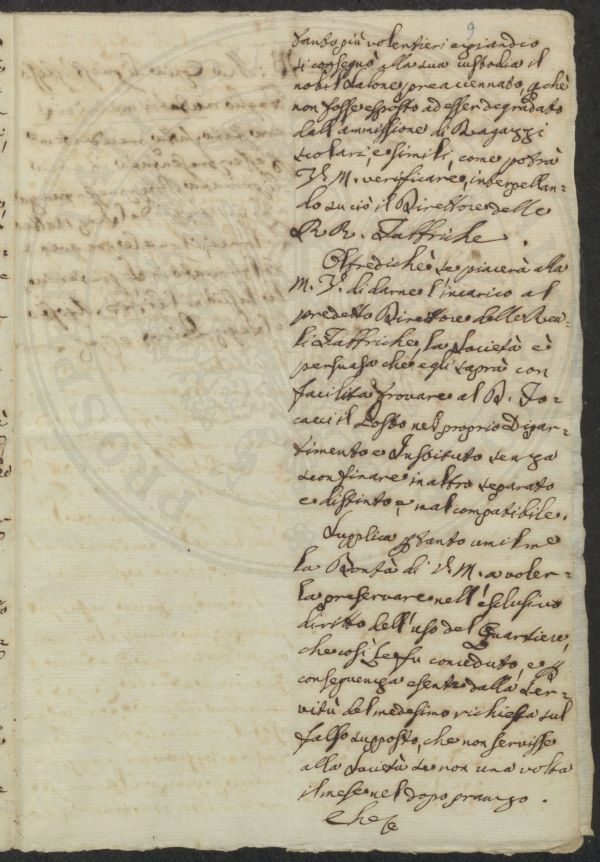 9
tanto più volentieri eqiandio
si consegnò alla sua custodia il
nobil Salone preaccennato, acchè
non fosse esposto ad esser degradato
dall'amissione di Ragazzi
scolari, e simili, come potrà
V. M. verificare, interpellan=
lo su ciò il Direttore delle
RR. Fabbriche.
Oltredichè se piacerà alla
M. V. di darne l'incarico al
predetto Direttore delle Rea=
li Fabbriche, la Società è
persuasa che egli saprà con
facilità trovare al R. To=
cacci il Posto nel proprio Dipar=
timento e Instituto senza
sconfinare in altro separato
e distinto, e mal compatibile.
Supplica ptanto umilme
la Bontà di V. M. a voler=
la preservare nell'esclusivo
diritto dell'uso del Quartiere,
che così le fu conceduto, e p
conseguenza esente dalla ser=
vitù del medesimo richiesta sul
falso supposto, che non servisse
alla Società se non una volta
il mese nel dopo pranzo.
Che